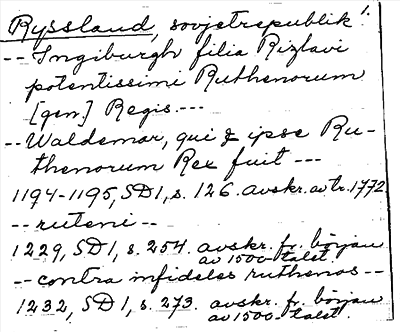 Ryssland, sovjetrepublik 1.
-- Ingiburgh filia Rizlavi
potentissimi Ruthenorum
[gen.] Regis. ---
-- Waldemar, qui & ipse Ru-
thenorum Rex fuit ---
1194-1195, SD1, s. 126. avskr. av tr. 1772
-- ruteni --
1229, SD1, s. 254. avskr. fr. början
av 1500-talet.
-- contra infideles ruthenos --
1232, SD1, s. 273. avskr. fr. början
av 1500-talet.